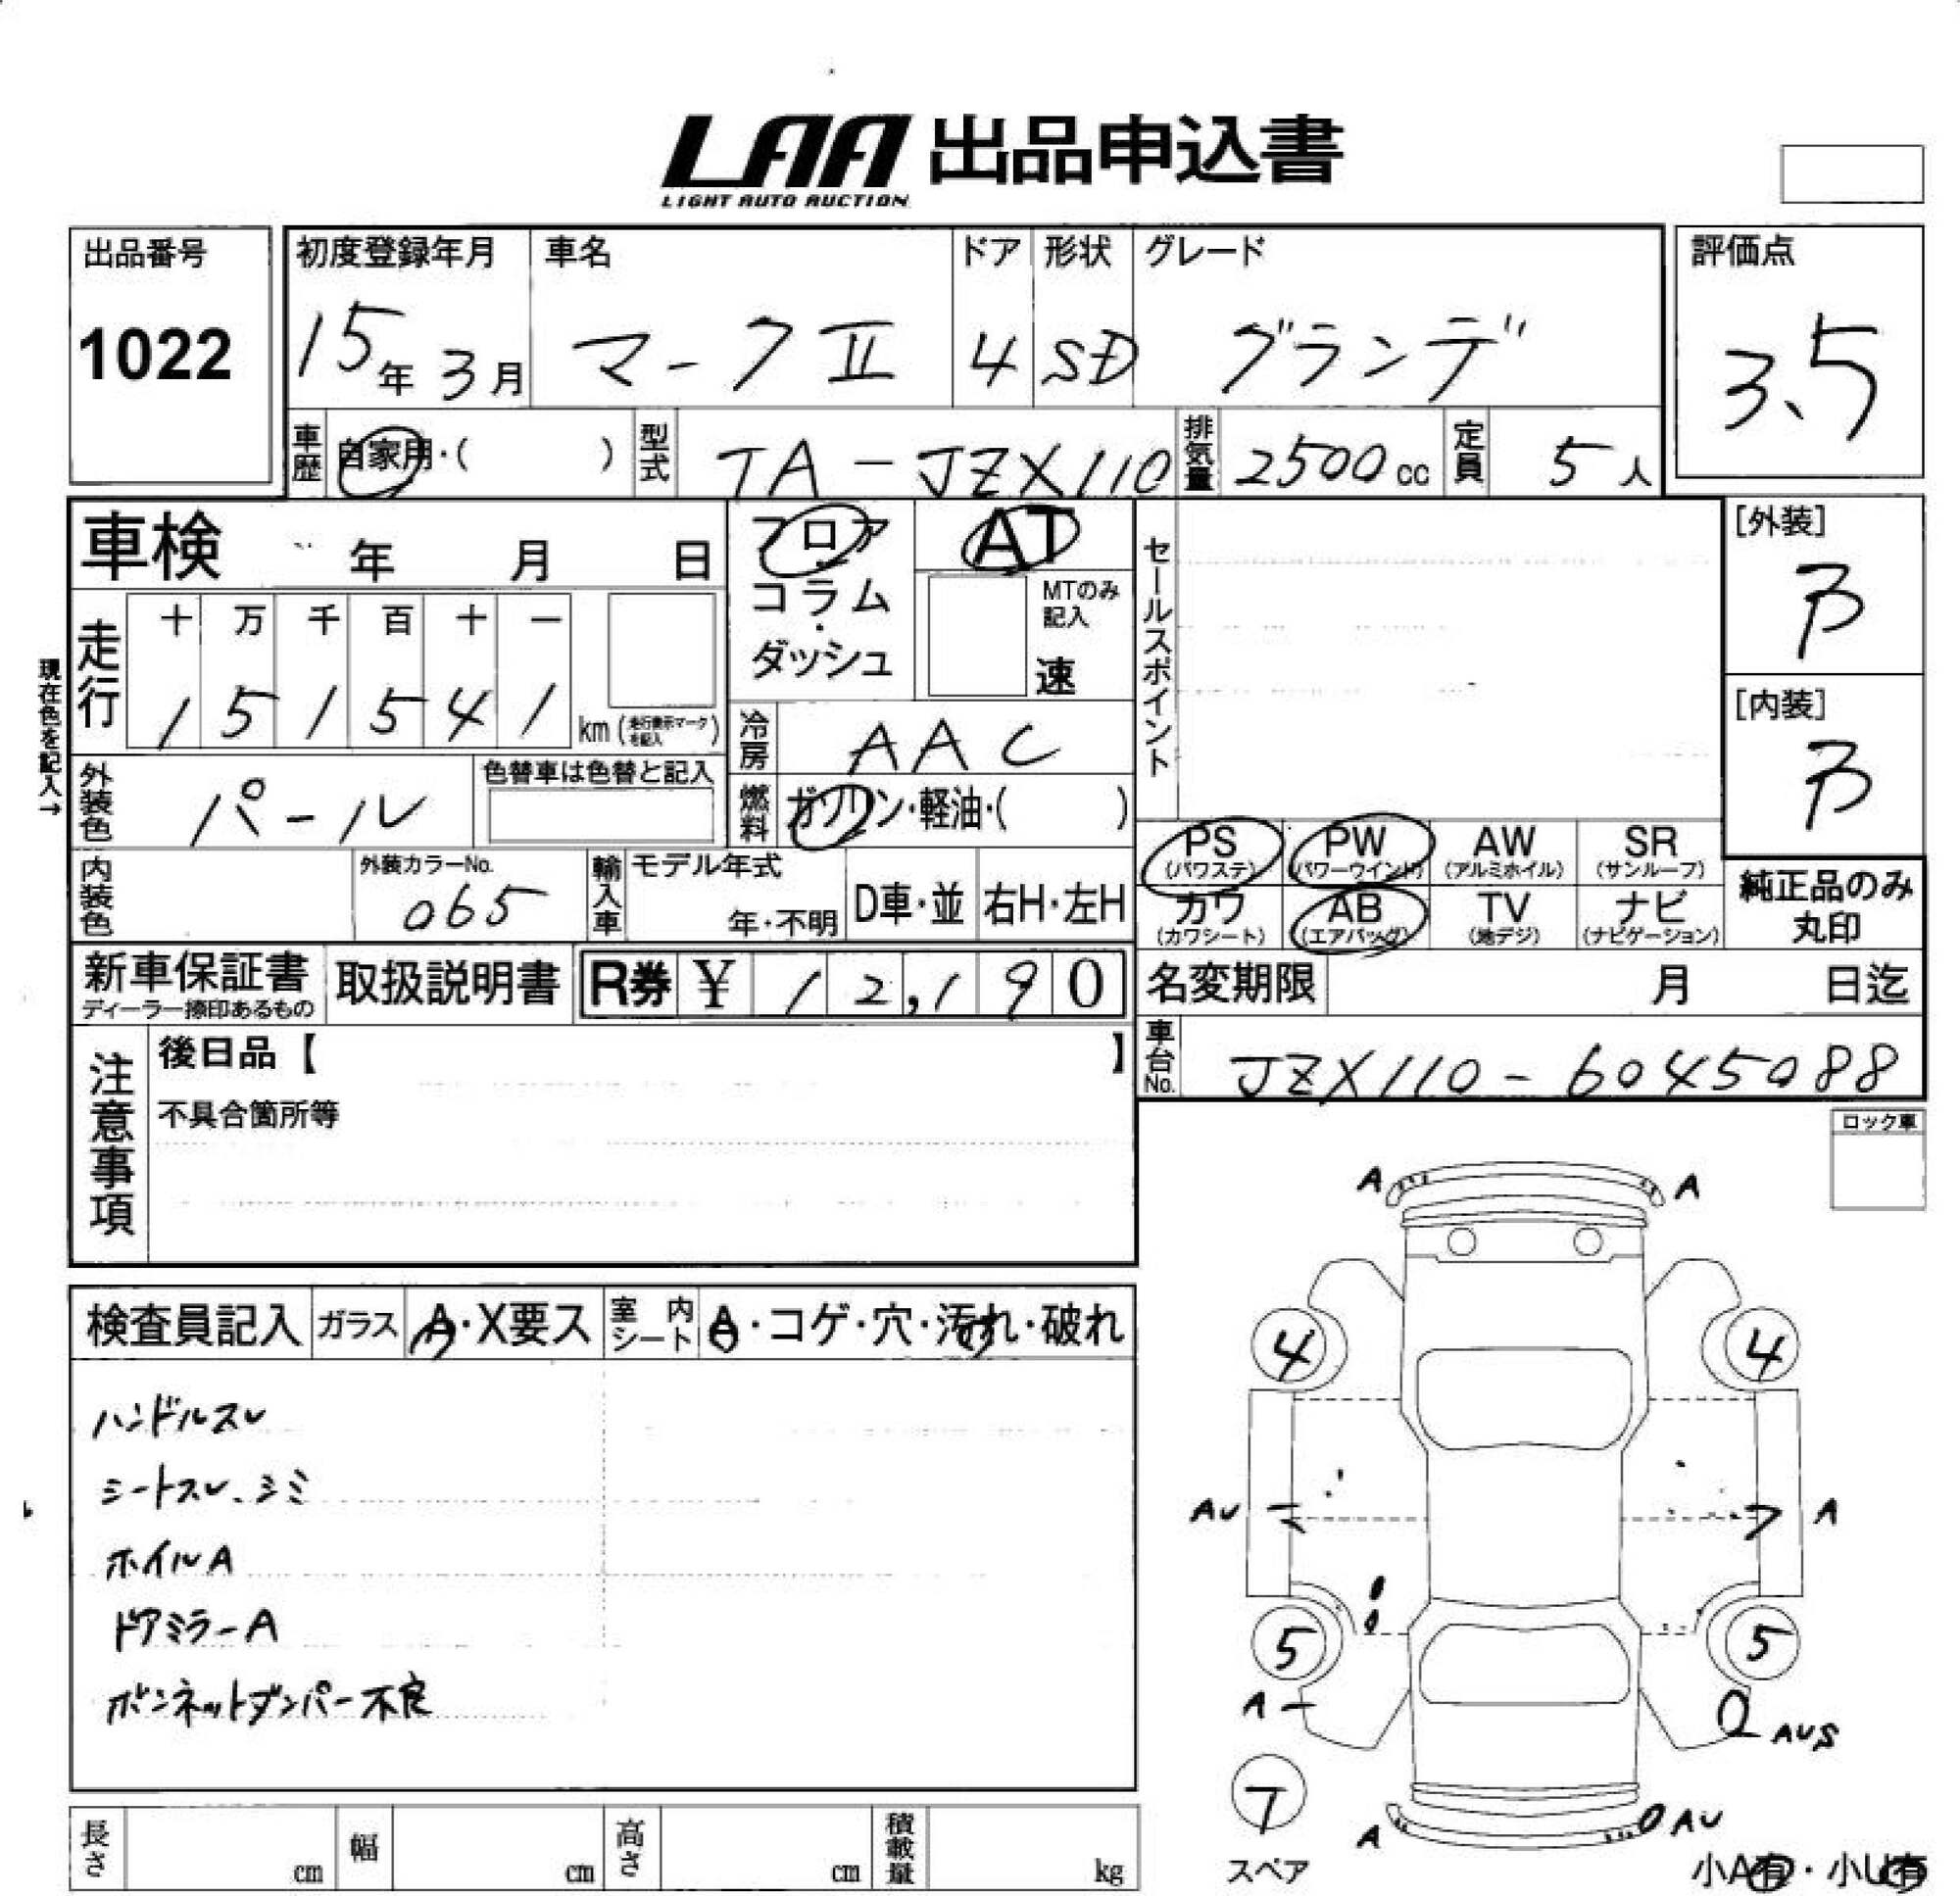 LAA 出品申込書
LIGHT AUTO AUCTION
出品番号
1022
初度登録年月
15年3月
車名
マークⅡ
ドア
4
形状
SD
グレード
グランデ
評価点
3.5
車歴 自家用・( )
型式 TA-JZX110
排気量 2500cc
定員 5人
車検 年 月 日
フロア
コラム
・
ダッシュ
AT
MTのみ
記入
速
セールスポイント
[外装]
B
[内装]
B
現在色を記入→
走行
十 万 千 百 十 一
1 5 1 5 4 1 km (走行表示マークを記入)
冷房 AAC
外装色 パール
色替車は色替と記入
燃料 ガソリン・軽油・( )
内装色
外装カラーNo.
065
輸入車
モデル年式
年・不明
D車・並
右H・左H
PS
(パワステ)
PW
(パワーウインド)
AW
(アルミホイル)
SR
(サンルーフ)
カワ
(カワシート)
AB
(エアバッグ)
TV
(地デジ)
ナビ
(ナビゲーション)
純正品のみ
丸印
新車保証書
ディーラー捺印あるもの
取扱説明書
R券 ¥ 12,190
名変期限 月 日迄
車台No. JZX110-6045088
注意事項
後日品【 】
不具合箇所等
ロック車
検査員記入
ガラス A・X要ス
室内シート A・コゲ・穴・汚れ・破れ
ハンドルスレ
シートスレ、シミ
ホイルA
ドアミラーA
ボンネットダンパー不良
A A
4 4
AU A
5 5
A AUS
7
スペア
A AU
小A有・小U有
長さ cm
幅 cm
高さ cm
積載量 kg